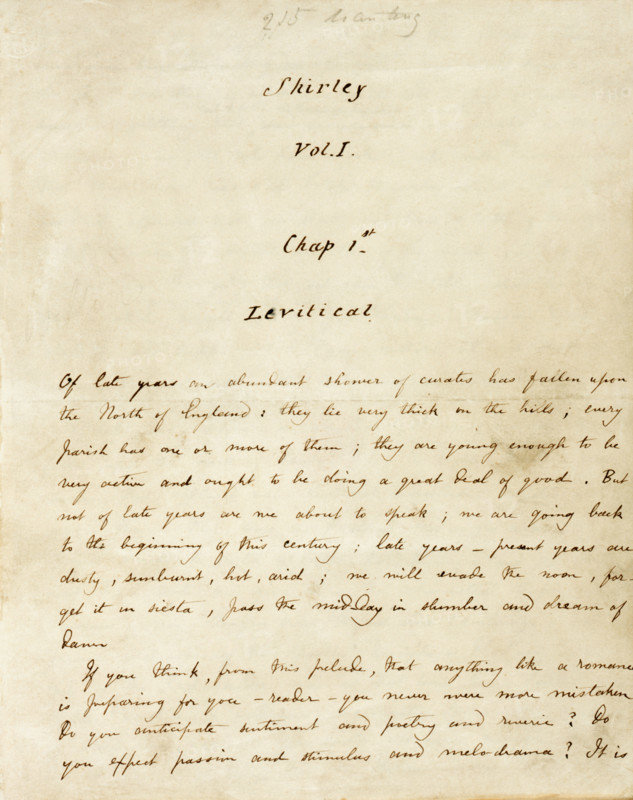 215
Shirley
Vol. I.
Chap 1st.
Levitical
Of late years an abundant shower of curates has fallen upon
the North of England : they lie very thick on the hills ; every
parish has one or more of them ; they are young enough to be
very active and ought to be doing a great deal of good . But
not of late years are we about to speak ; we are going back
to the beginning of this century ; late years – present years are
dusty , sunburnt, hot, arid ; we will evade the noon , for-
get it in siesta , pass the mid-day in slumber and dream of
dawn
If you think, from this prelude, that anything like a romance
is preparing for you – reader – you never were more mistaken
Do you anticipate sentiment and poetry and reverie ? Do
you expect passion and stimulus and melodrama ? It is